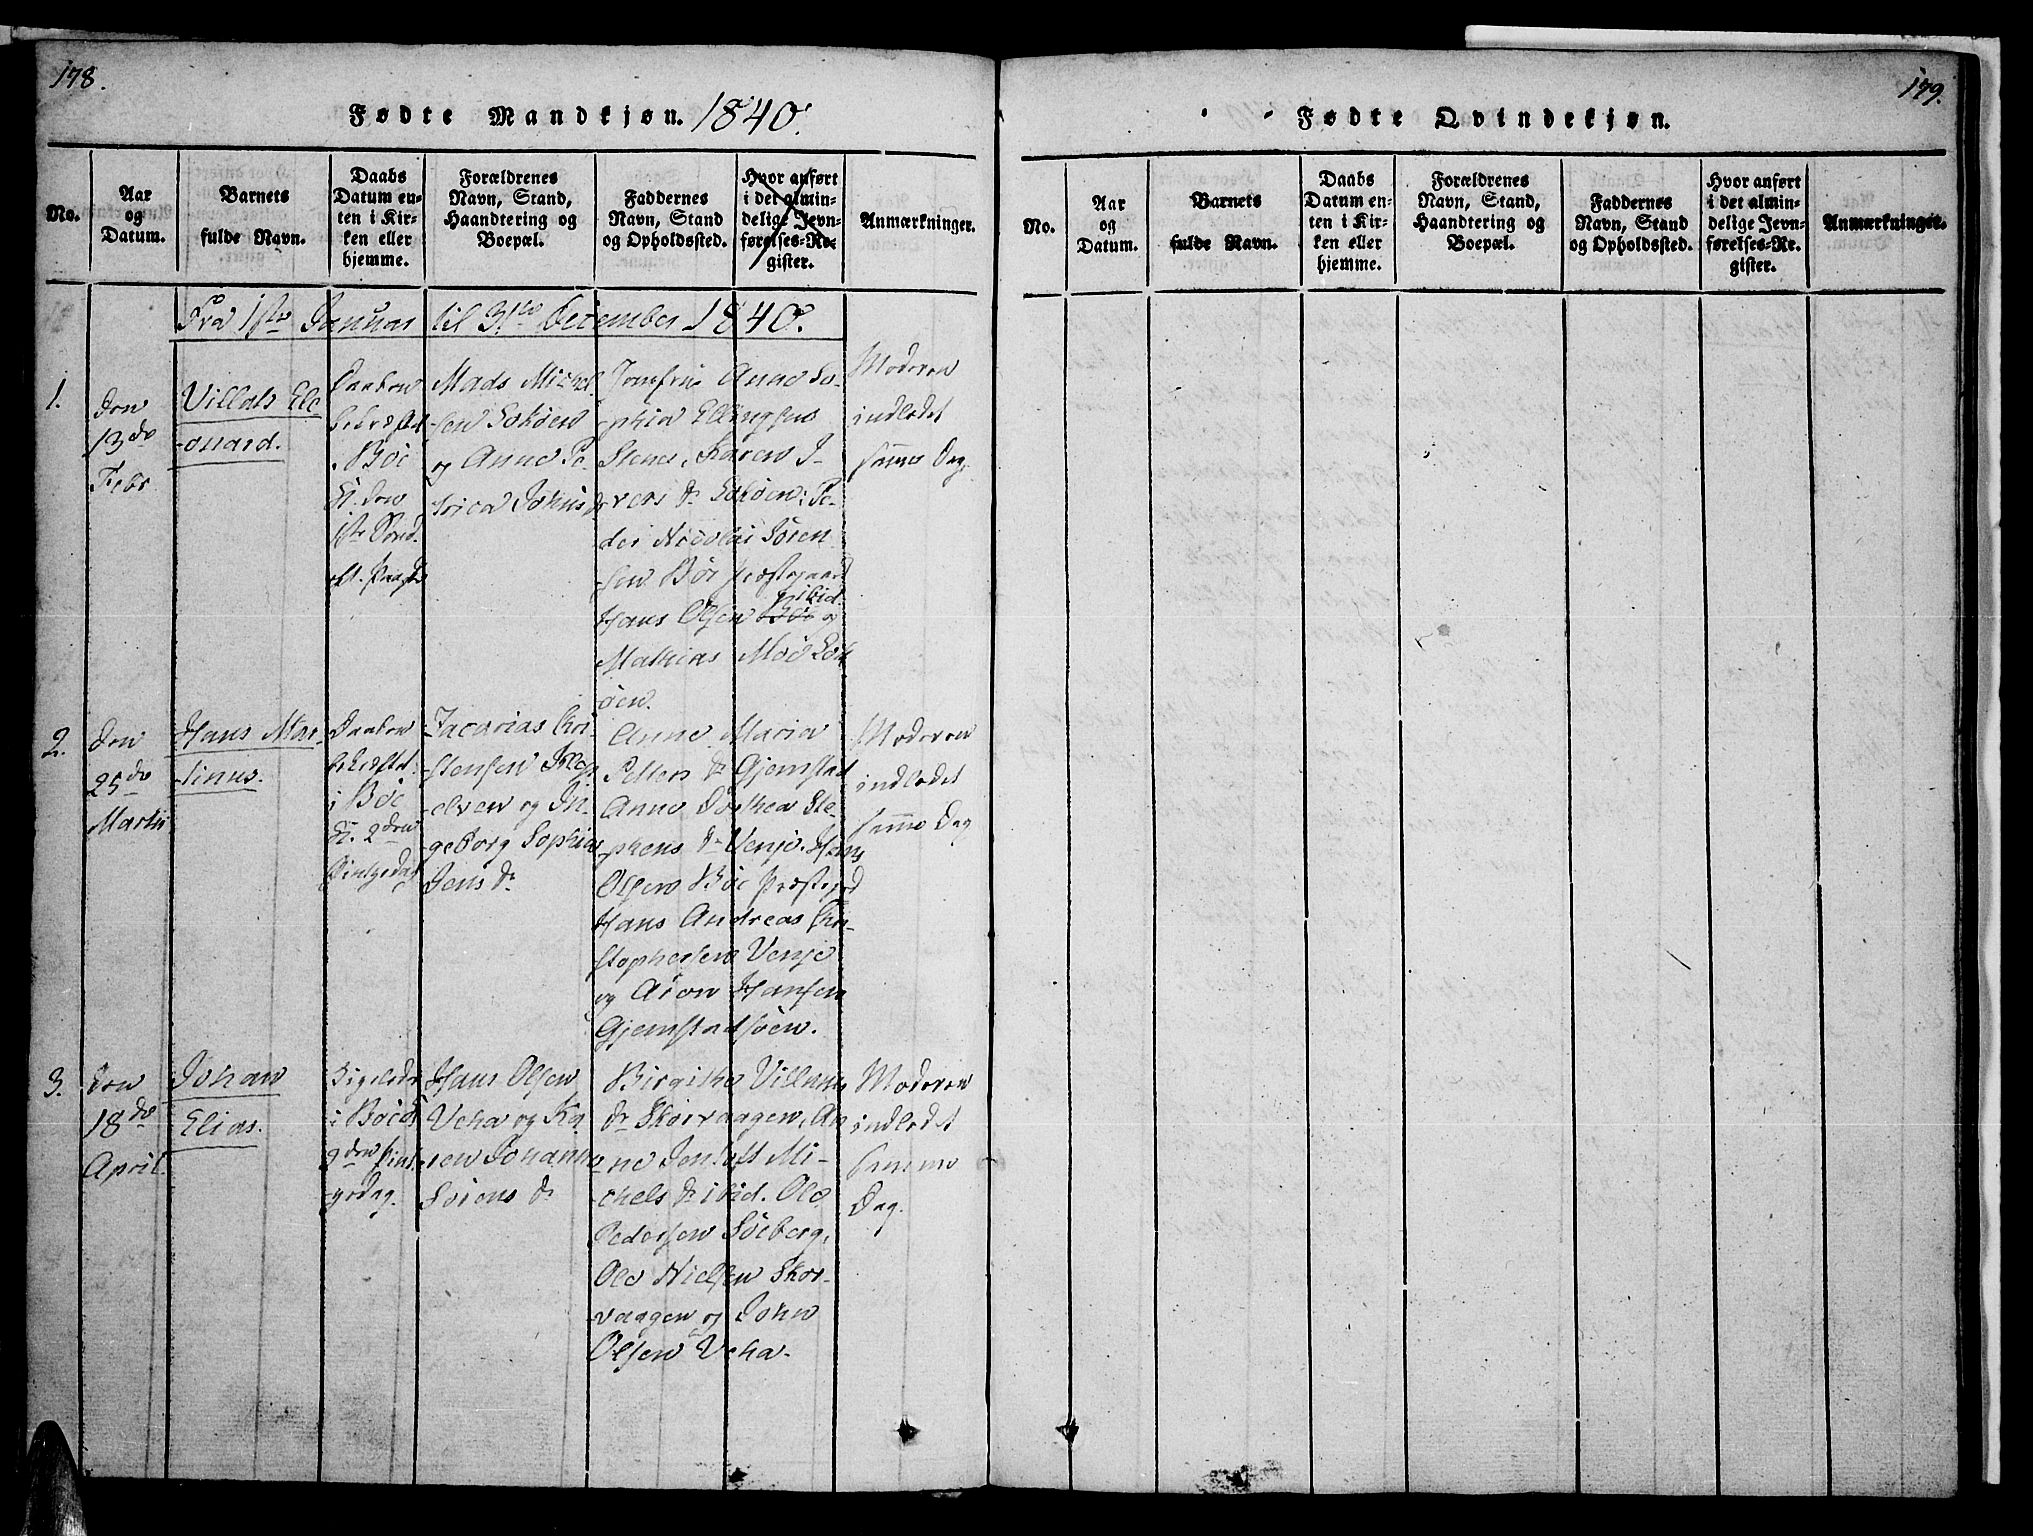 178.
Fødte Mandkjøn. 1840.
No.
Aar
og
Datum.
Barnets
fulde Navn.
Daabs
Datum en-
ten i Kir-
ken eller
hjemme.
Forældrenes
Navn, Stand,
Haandtering og
Boepæl.
Faddernes
Navn, Stand
og Opholdssted.
Hvor anført
i det almin-
delige Jevn-
førelses-Re-
gister.
Anmærkninger.
Fra 1ste Januar til 31te December 1840.
1.
den
13de
Febr
Villats Ele
onard.
Daaben
bekræftet
i Böe
K. den
1ste Sønd.
Mads Michel
sen Sokøen
og Anne Pe
trica Johns dr
Jomfrue Anne So-
phia Ellingsen
Stene, Karen J-
vers dr Sokøen; Pe-
der Nicolai Sören-
sen Böe Præstegaard
Hans Olsen ibid. og
Mathias Moe Sok
öen.
Moderen
indledet
samme Dag.
2.
den
25de
Martii
Hans Mar-
tinus.
Daaben
bekræftet
i Böe
K. 2den
Pintsedag
Zacarias Chri-
stensen
elven og In-
geborg Sophia
Jens dr
Anne Maria
Petters dr Gjemstad
Anne Dorthea Ste-
phens dr Venje. Hans
Olsen Böe Præstegrd
Hans Andreas Chri-
stophersen Venje
og Aron Hansen
Gjemstadsöen.
Moderen
indledet
samme Dag
3.
den
18de
April
Johan
Elias.
Ligeledes
i Böe
2den Pint-
sedag.
Hans Olsen
Veha og Ka
ren Johanna
Sörens dr
Birgithe Villums
dr Skorvaagen, An
ne Jentoft Mi-
chels dr ibid. Ole
Pedersen Söeberg,
Ole Nielsen Skor-
vaagen og John
Olsen Veha.
Moderen
indledet
samme
Dag.
179.
Fødte Qvindekjøn.
No.
Aar
og
Datum.
Barnets
fulde Navn.
Daabs
Datum en-
ten i Kir-
ken eller
hjemme.
Forældrenes
Navn, Stand,
Haandtering og
Boepæl.
Faddernes
Navn, Stand
og Opholdssted.
Hvor anført
i det almin-
delige Jevn-
førelses-Re-
gister.
Anmærkninger.